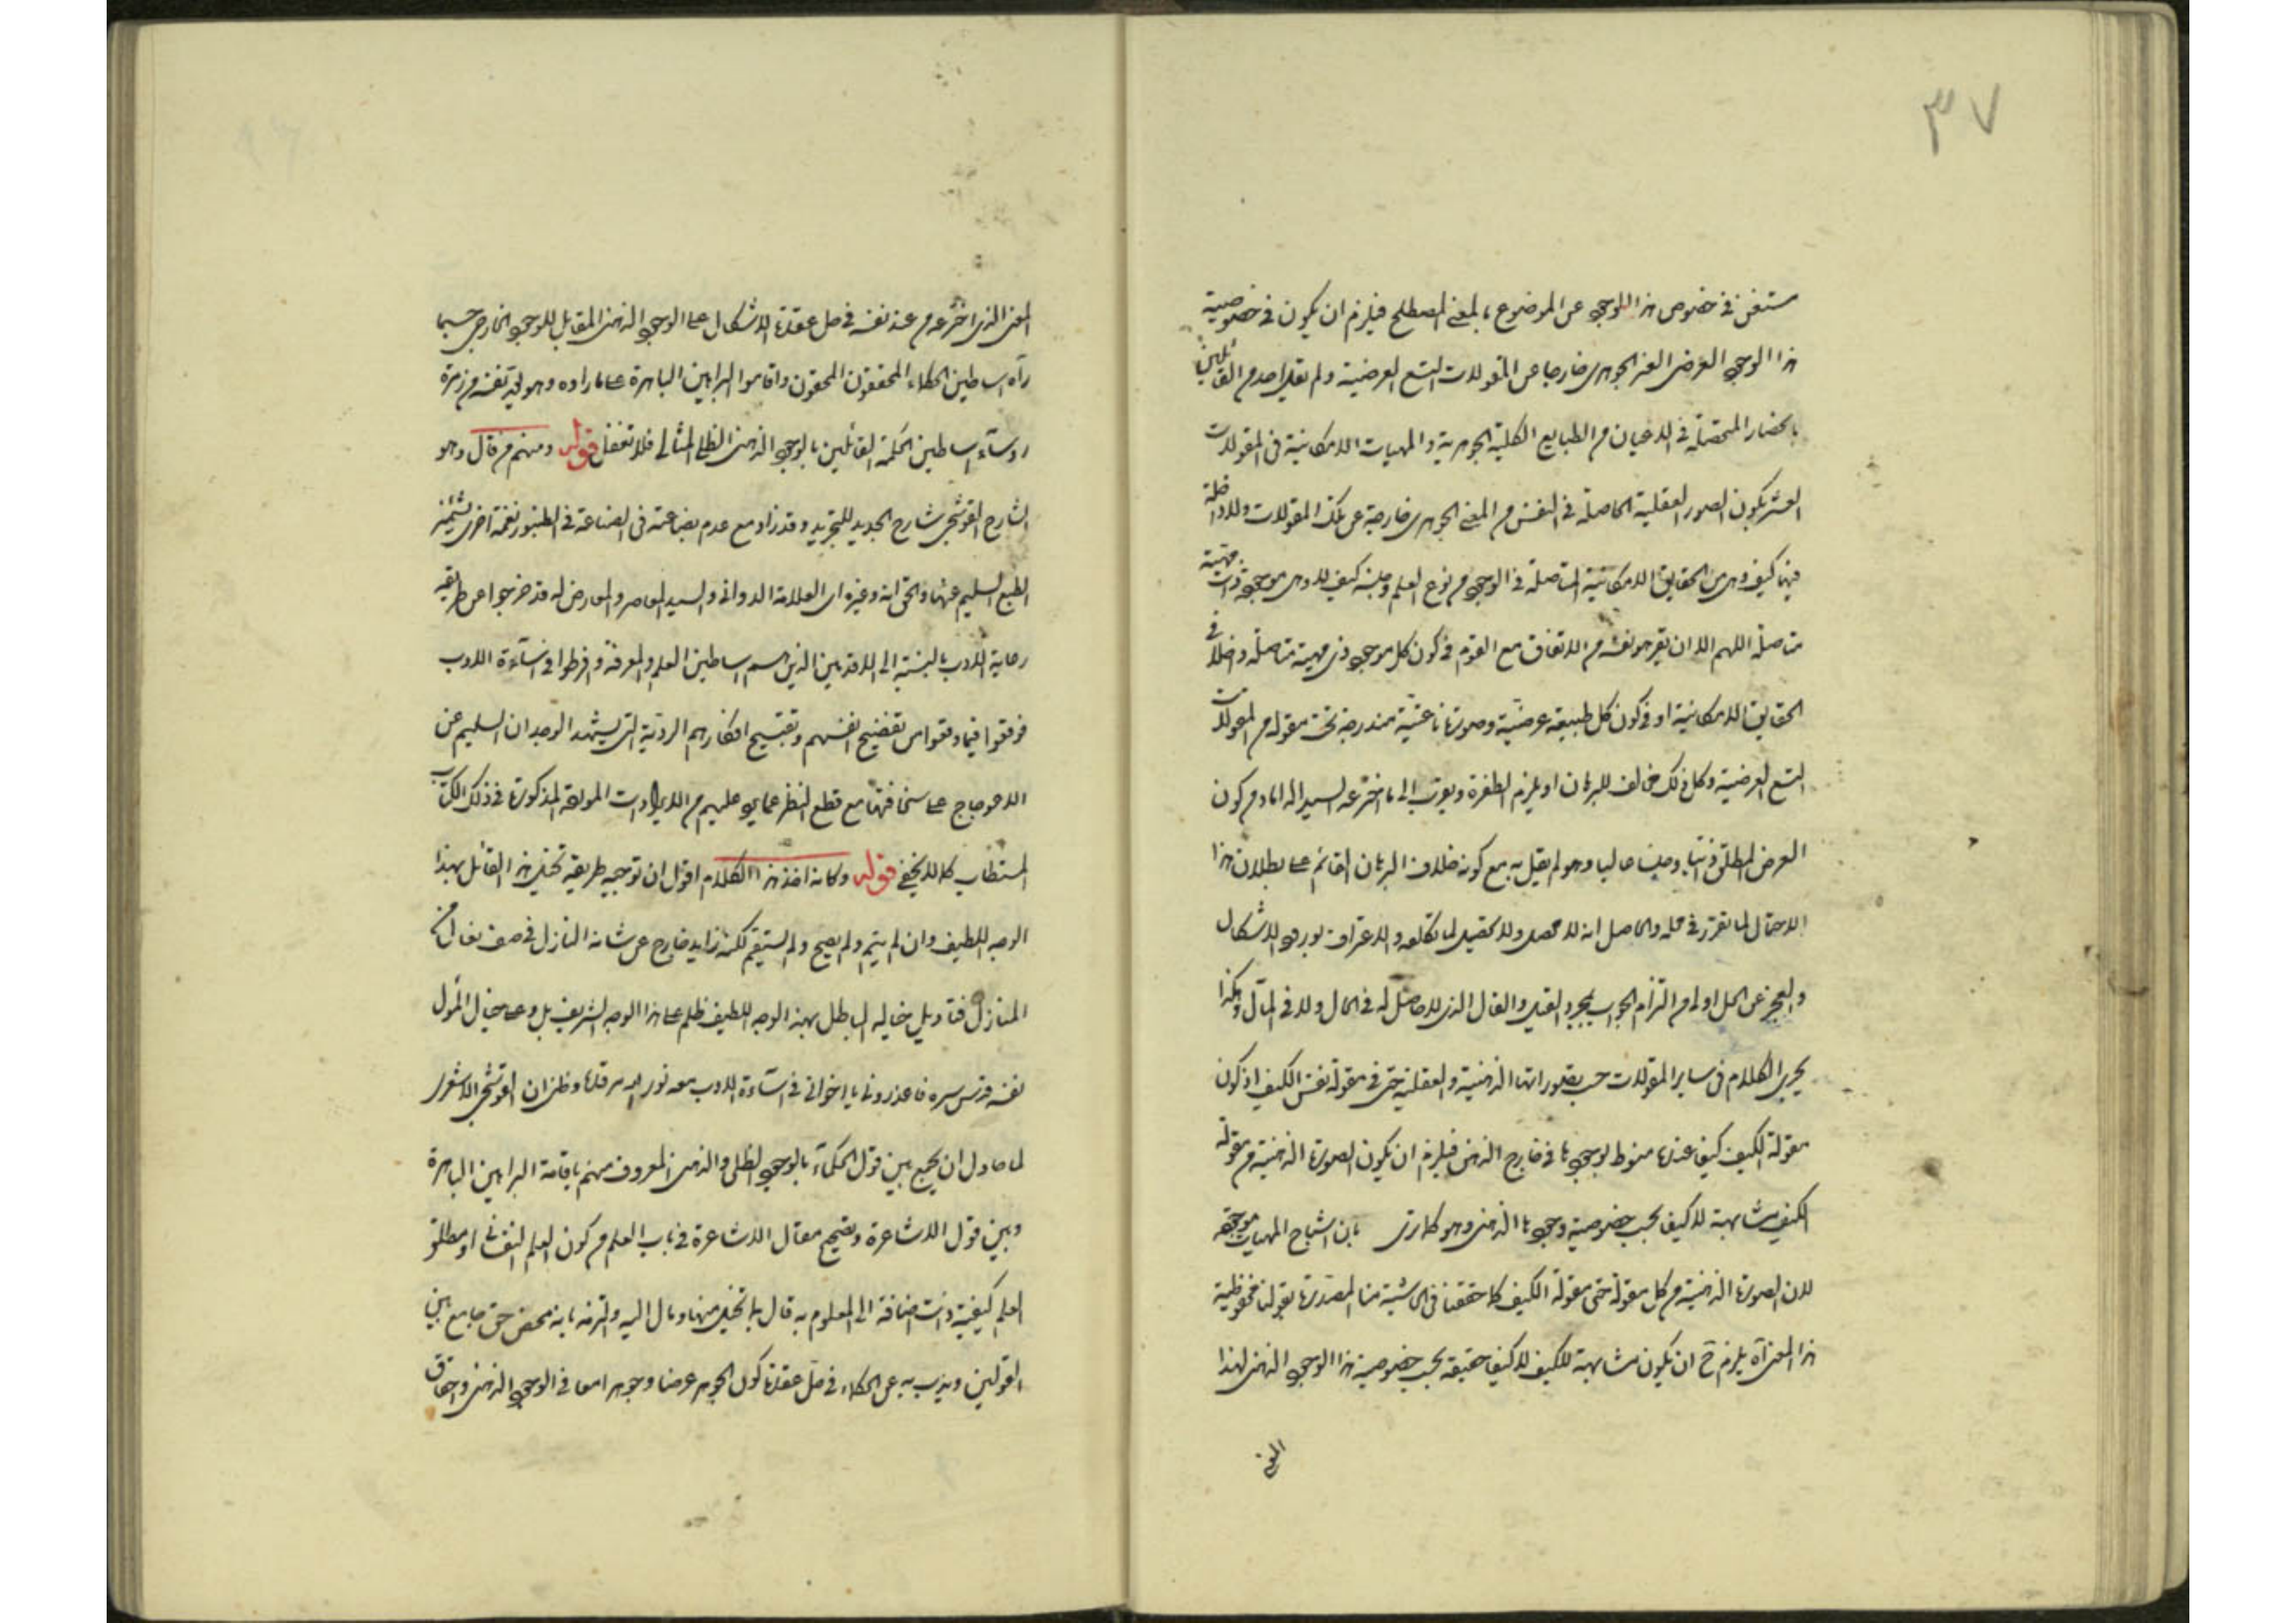 ٣٧
مستغن في خصوص هذا الوجود عن الموضوع بالمعنى المصطلح فيلزم ان يكون في خصوصية
هذا الوجود العرضى الغير الجوهرى خارجا عن المقولات التسع العرضية ولم يقل احد من القائلين
بانحصار المتحصلة في الاعيان من الطبايع الكلية الجوهرية والمهيات الامكانية في المقولات
العشر بكون الصور العقلية الحاصلة في النفس من المعنى الجوهرى خارجة عن تلك المقولات ولا داخلة
فيها كيف وهى من الحقايق الامكانية المتاصلة في الوجود من نوع العلم وجنسه كيف لا وهى موجودة ذات مهية
متاصلة اللهم الا ان يخرج نفسه من الاتفاق مع القوم في كون كل موجود ذى مهية متاصلة داخلا في
الحقايق الامكانية او في كون كل طبيعة عرضية وصورة ناعتية مندرجة تحت مقولة من المقولات
التسع العرضية وكل ذلك مخالف للبرهان او يلزم الطفرة ويهرب الى ما اخترعه السيد الداماد من كون
العرض المطلق ذاتيا وجنسا عاليا وهو لم يقل به مع كونه خلاف البرهان القائم على بطلان هذا
الاحتمال لما تقرر في محله والحاصل انه لا محصل ولا تحصيل لما تكلفه والاعتراف بورود الاشكال
والعجز عن الحل اولى من التزام الجواب بمجرد القيل والقال الذى لا حاصل له في الحال ولا في المآل وهكذا
يجرى الكلام في ساير المقولات حسب تصوراتها الذهنية والعقلية حتى في مقولة نفس الكيف اذ كون
مقولة الكيف كيفا عنده منوط بوجودها في خارج الذهن فيلزم ان يكون الصورة الذهنية من مقولة
الكيف مشابهة لا كيف بحسب خصوصية وجودها الذهنى وهو كما ترى بان اشباح المهيات موجودة
لان الصورة الذهنية من كل مقولة حتى مقولة الكيف كما حققنا في الحاشية منا المصدرة بقولنا محفوظية
هذا المعنى آه يلزم ح ان يكون مشابهة للكيف لا كيف حقيقة بحسب خصوصية هذا الوجود الذهنى لهذا
المعنى
المعنى الذى اخترعه من عند نفسه في حل عقدة الاشكال على الوجود الذهنى المقابل للوجود الخارجى حسبما
رآه اساطين الحكماء المحققون المحقون واقاموا البراهين الباهرة على ما راده وهو لا يعد نفسه من زمرة
رؤسآء اساطين الحكمة القائلين بالوجود الذهنى الظلى المثالى فلا تغفل قوله ومنهم من قال وهو
الشارح القوشجى شارح الجديد للتجريد وقد زاد مع عدم بضاعته في الصناعة في الطنبور نغمة اخرى يشمئز
الطبع السليم عنها والحق انه وغيره اى العلامة الدوانى والسيد المعاصر والمعارض له قد خرجوا عن طريقة
رعاية الادب بالنسبة الى الاقدمين الذين هم اساطين العلم والمعرفة وافرطوا في اسآءة الادب
فوقعوا فيما وقعوا من تفضيح انفسهم وتقبيح افكارهم الردية التى يشهد الوجدان السليم عن
الاعوجاج على سخافتها مع قطع النظر عما يرد عليهم من الايرادات الموردة المذكورة في ذلك الكتاب
المستطاب كما لا يخفى قوله وكانه اخذ هذا الكلام اقول ان توجيه طريقة تخيل هذا القائل بهذا
الوجه اللطيف وان لم يتم ولم يصح ولم يستقم لكنه زايد خارج عن شانه النازل في صف نعال
المنازل فتاويل خياله الباطل بهذا الوجه اللطيف ظلم على هذا الوجه الشريف بل وعلى خيال المأول
نفسه قدس سره فاعذرونى يا اخوانى في اسآءة الادب معه نور الله مرقده وظنى ان القوشجى الاشعرى
لما حاول ان يجمع بين قول الحكمآء بالوجود الظلى والذهنى المعروف منهم باقامة البراهين الباهرة
وبين قول الاشاعرة وتصحيح مقال الاشاعرة في باب العلم من كون العلم النفسانى او مطلق
العلم كيفية ذات اضافة الى المعلوم به قال بما تخيل منها ومال اليه والتزمه بانه محض حق جامع بين
القولين ويذب به عن الحكماء في حل عقدة كون الجوهر عرضا وجوهرا معا في الوجود الذهنى واحقاق